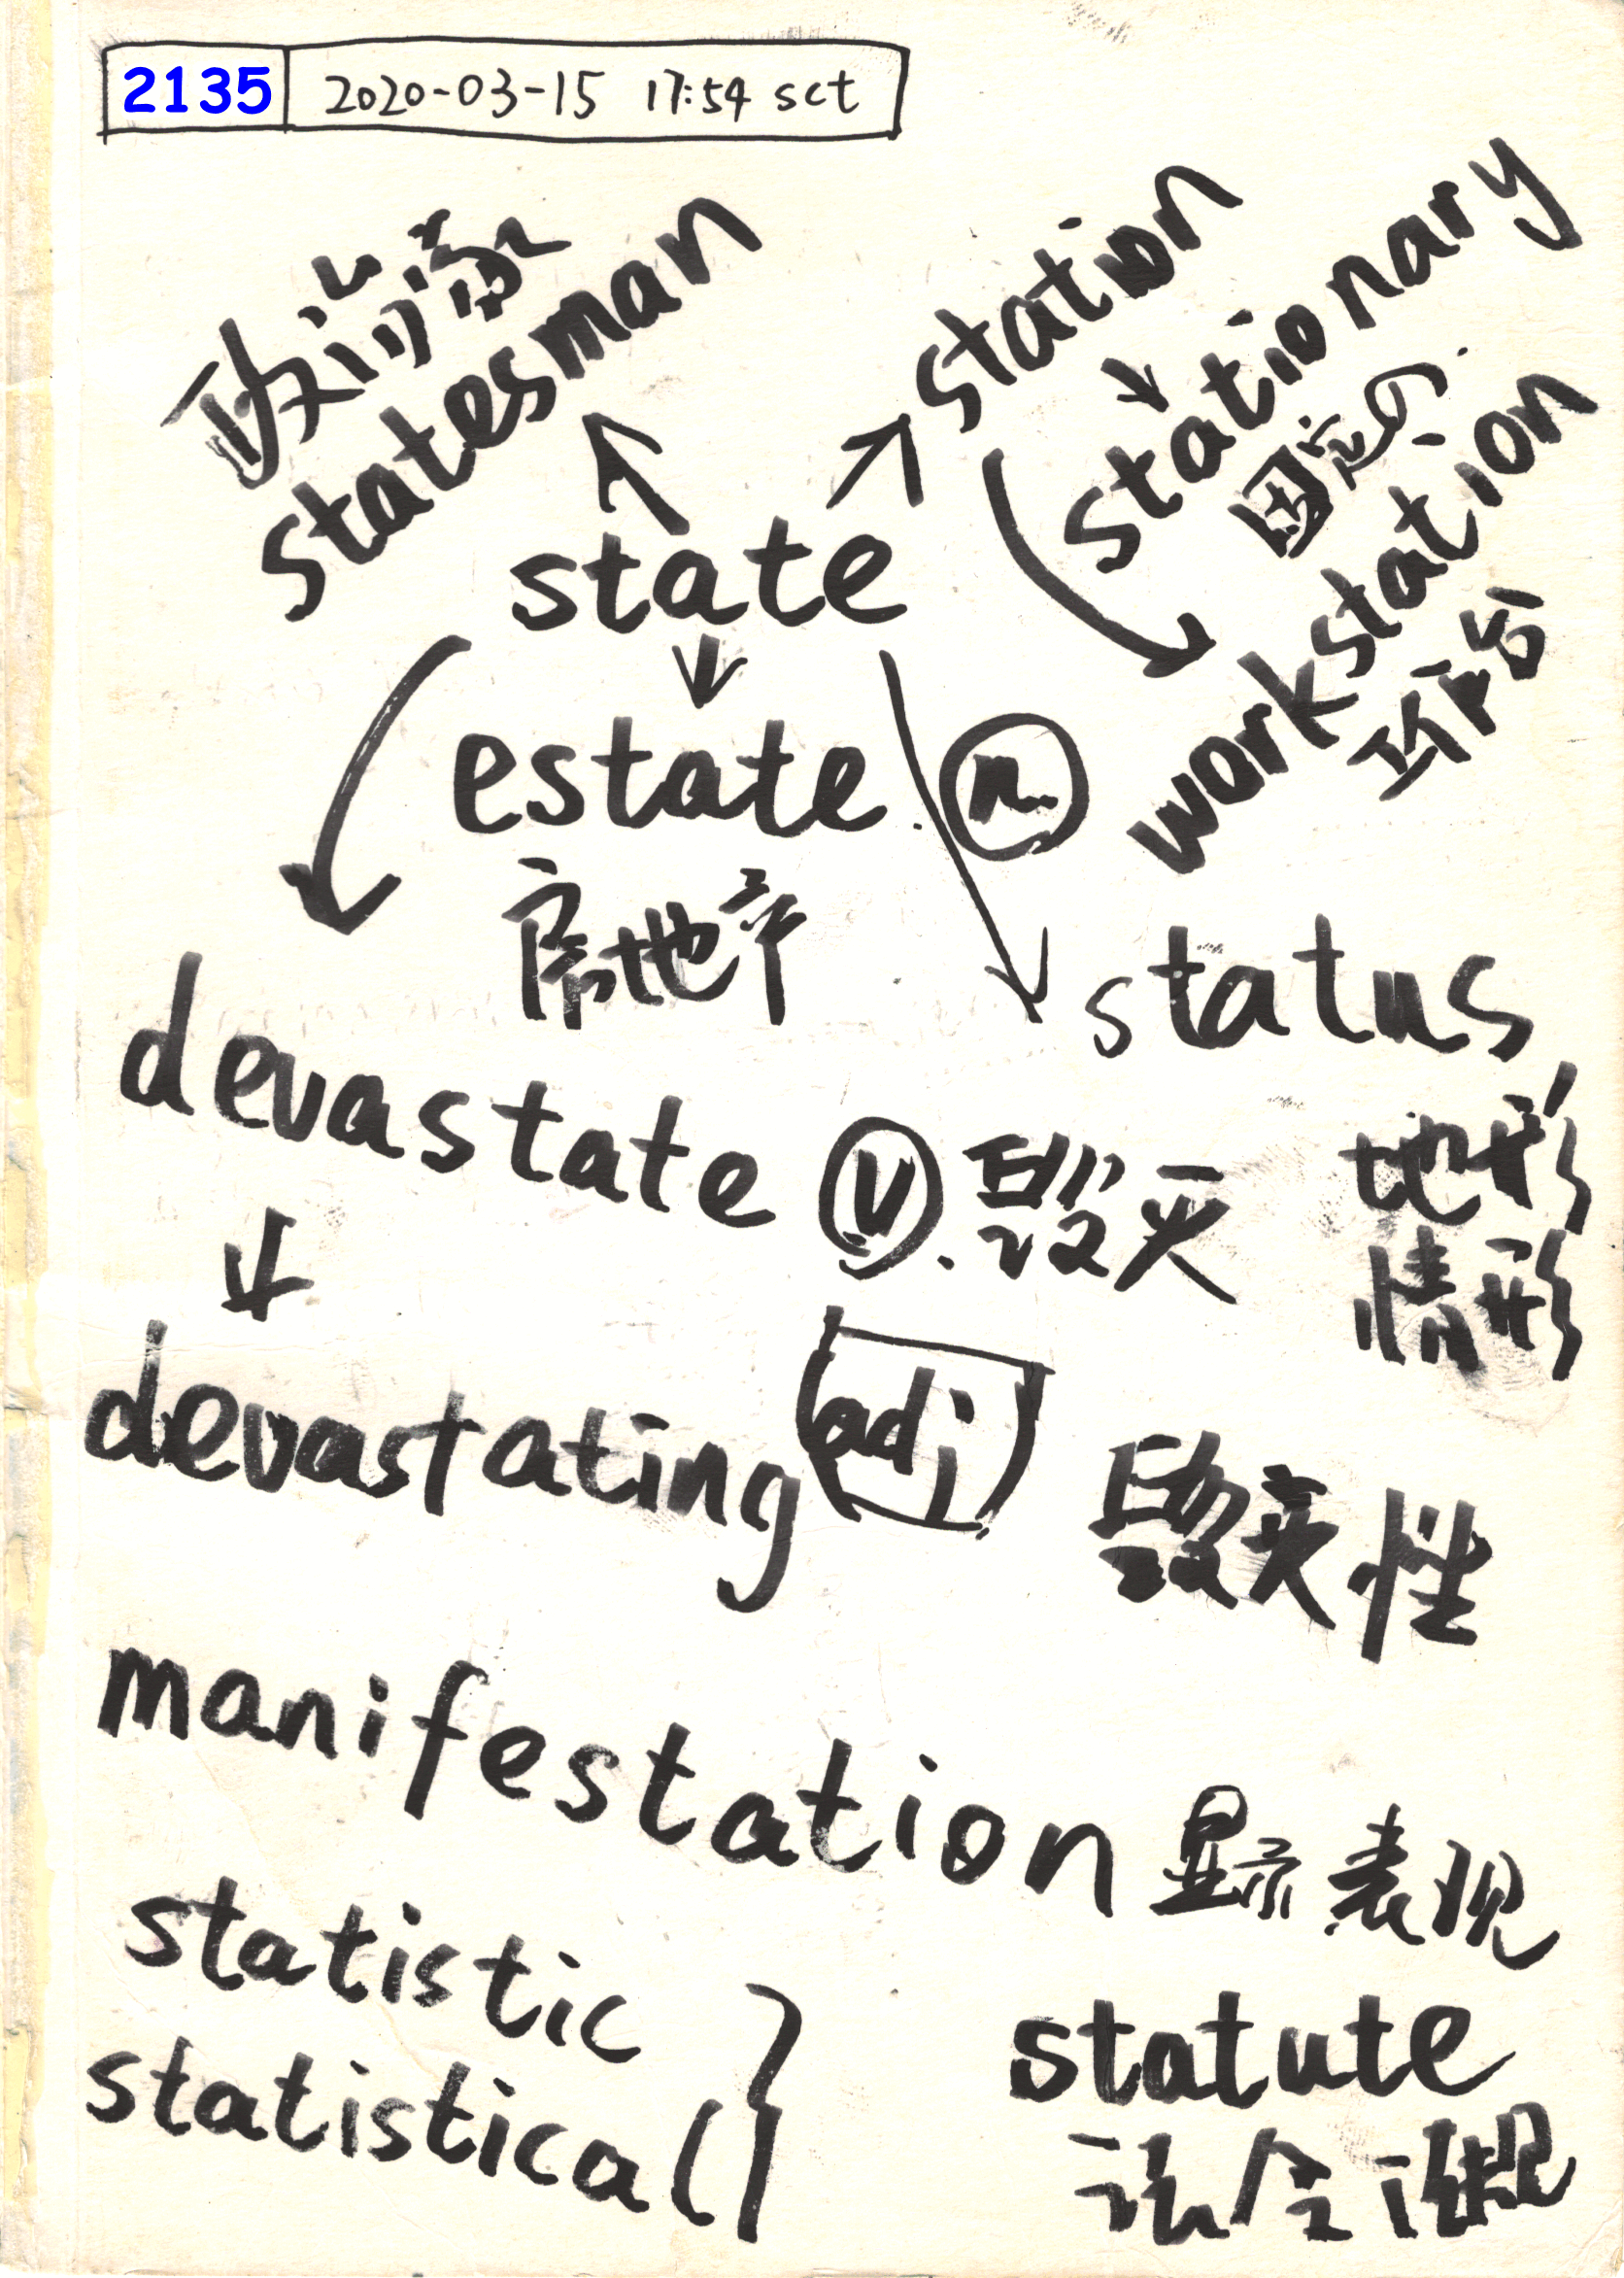 2135 2020-03-15 17:54 sct
政治家
statesman
station
stationary
固定の
workstation
state
estate n.
房地产
status
地形
情形
devastate v. 毁灭
devastating adj 毁灭性
manifestation 显示 表现
statistic
statistical
statute
法令 法规